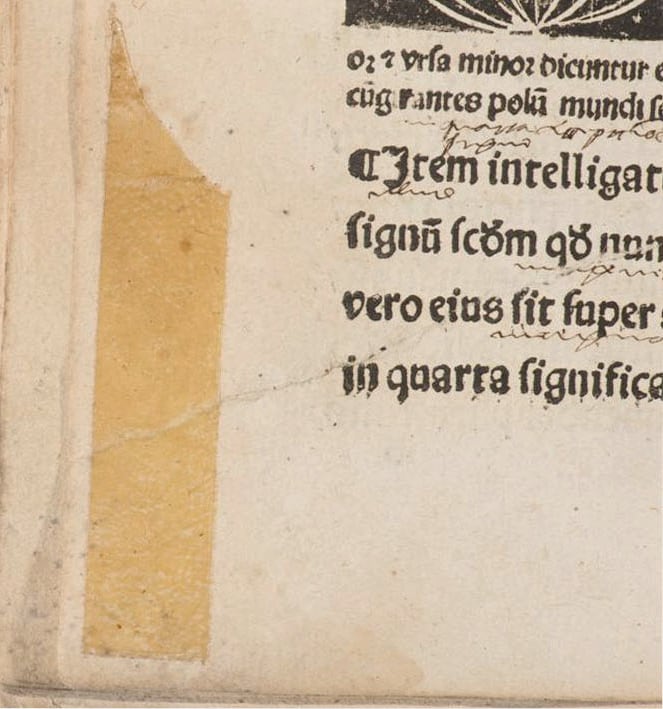 oꝛ ⁊ vrſa minoꝛ dicuntur e
cūg rantes polū mundi ſe
¶Item intelligat
ſignū ſcđm qđ nun
vero eius ſit ſuper
in quarta ſignifica